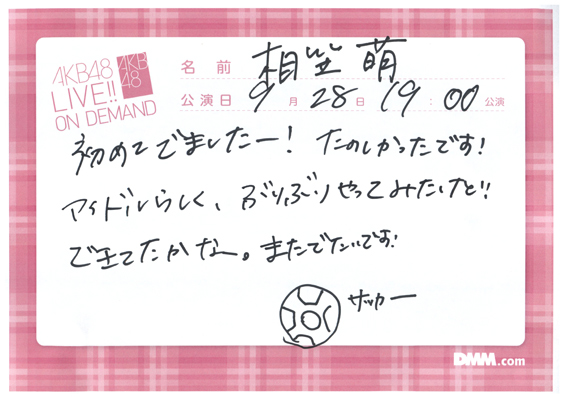 AKB48
LIVE!!
ON DEMAND
AKB
48
名前 相笠 萌
公演日 9月28日 19:00公演
初めてでましたー! たのしかったです!
アイドルらしく、ぶりぶりやってみたけど!!
できてたかなー。またでたいです!
サッカー
DMM.com